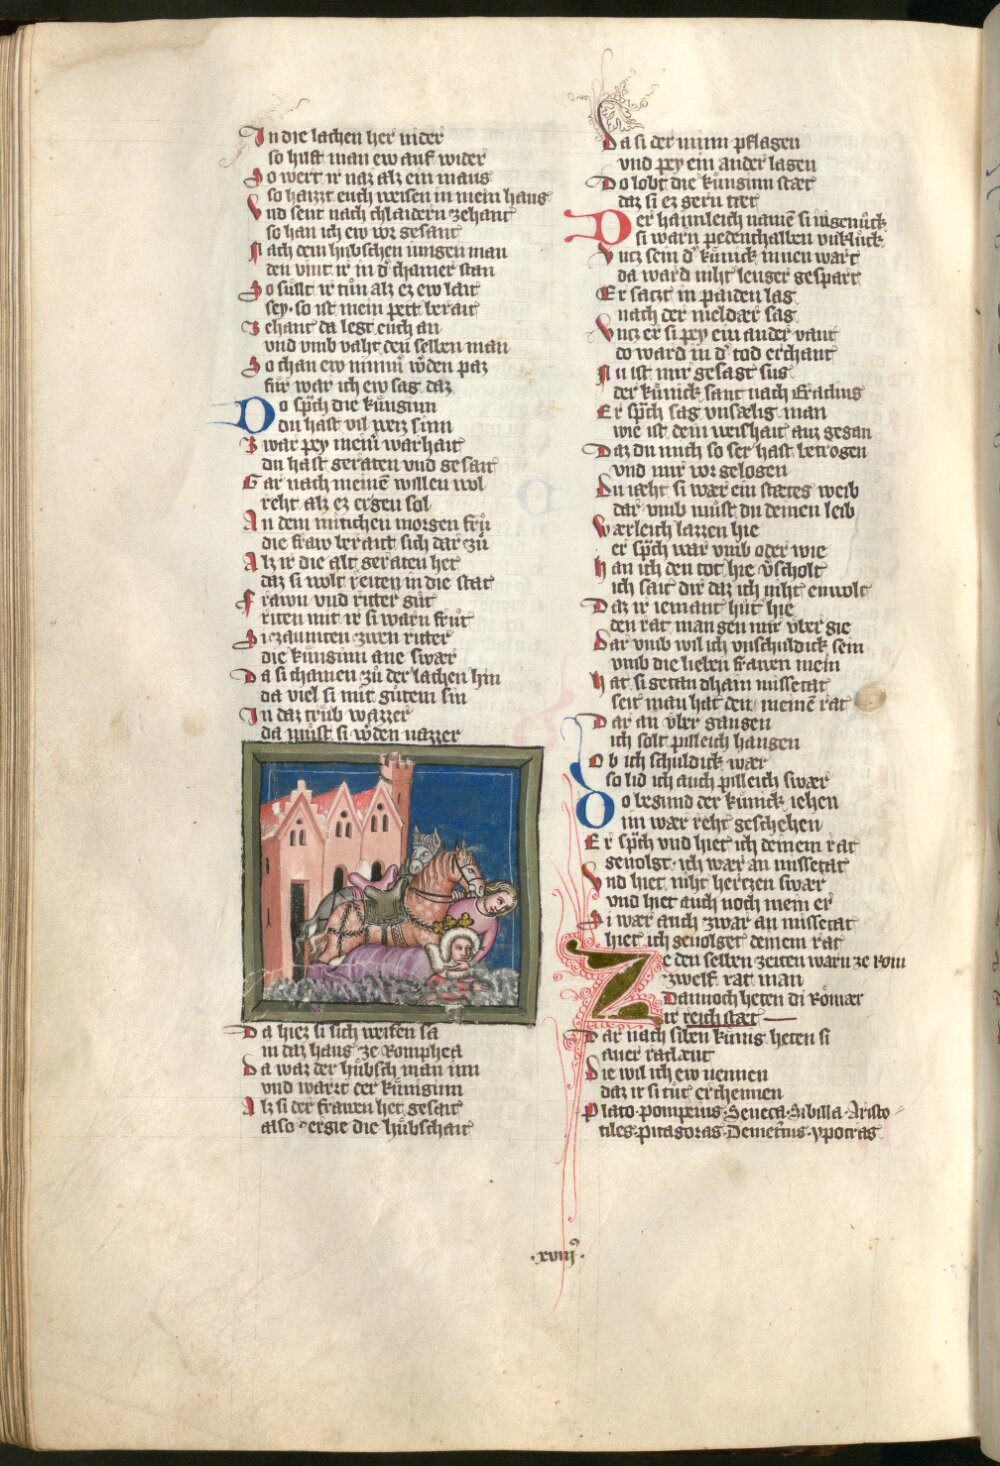 In die lachen her nider
so hilft man ew auf wider
So wert ir naz alz ein maus
so haizzt euch weisen in mein haus
Vnd sent nach chlaidern zehant
so han ich ew vor gesant
Nach dem hubschen iungen man
den vint ir in d' chamer stan
So sullt ir tun alz ez ew lait
sey · so ist mein pett berait
Zehant da legt euch an
vnd vmb vaht den selben man
So chan ew nimm' w'den paz
fur war ich ew sag daz
Do sp'ch die kunginn
du hast vil weiz sinn
Zwar pey mein' warhait
du hast geraten vnd gesait
Gar nach meinē willen wol
reht alz ez ergen sol
An dem mitichen morgen frů
die fraw berait sich dar zů
Alz ir die alt geraten het
daz si wolt reiten in die stat
Frawn vnd ritter gůt
riten mit ir si warn frůt
Si zaumten zwen ritter
die kunginn ane swar
Da si chamen zů der lachen hin
da viel si mit gůtem sin
In daz trůb wazzer
da můst si w'den nazzer
Da hiez si sich weisen sa
in daz haus ze Romphea
Da waz der hůbsch man inn
vnd wartt der kunginn
Alz si der frauen het gesait
also ergie die hůbschait
Da si der minn pflagen
vnd pey ein ander lagen
Do lobt die kunginn stæt
daz si ez gern tæt
Der haimleich namē si ingenůck
si warn pedenthalben vnkluck
Vntz sein d' kunick innen wart
da ward niht lenger gespart
Er satzt in paiden lag
nach der meldær sag
Vntz er si pey ein ander vant
do ward in d' tod erchant
Nu ist mir gesagt sus
der kunick sant nach Eraclius
Er sp'ch sag vnsælig man
wie ist dein weishait auz gegan
Daz du mich so ser hast betrogen
vnd mir vor gelogen
Du iæht si wær ein stætes weib
dar vmb můst du deinen leib
Wærleich lazzen hie
er sp'ch war vmb oder wie
Han ich den tot hie v'scholt
ich sait dir daz ich niht enwolt
Daz ir iemant hůt hie
den rat man gen mir vber gie
Dar vmb wil ich vnschuldick sein
vmb die lieben frawen mein
Hat si getan dhain missetat
seit man hat den meinē rat
Dar an vber gangen
ich solt pilleich hangen
Ob ich schuldick wær
so lid ich auch pilleich swær
Do begund der kunick iehen
im wær reht geschehen
Er sp'ch vnd hiet ich deinem rat
geuolgt · ich wær an missetat
Vnd hiet niht hertzen swær
vnd hiet auch noch mein er
Si wær auch zwar an missetat
hiet ich geuolget deinem rat
Ze den selben zeiten warn ze Rom
zwelf rat man
Dannoch heten di Romær
ir reich stæt
Dar nach siben kunig heten si
auer ratlæut
Die wil ich ew nennen
daz ir si tůt erchennen
Plato · pompeius · Seneca · Sibilla · Aristo
tiles · pitagoras · Demetrius · ypocras
· xviij ·